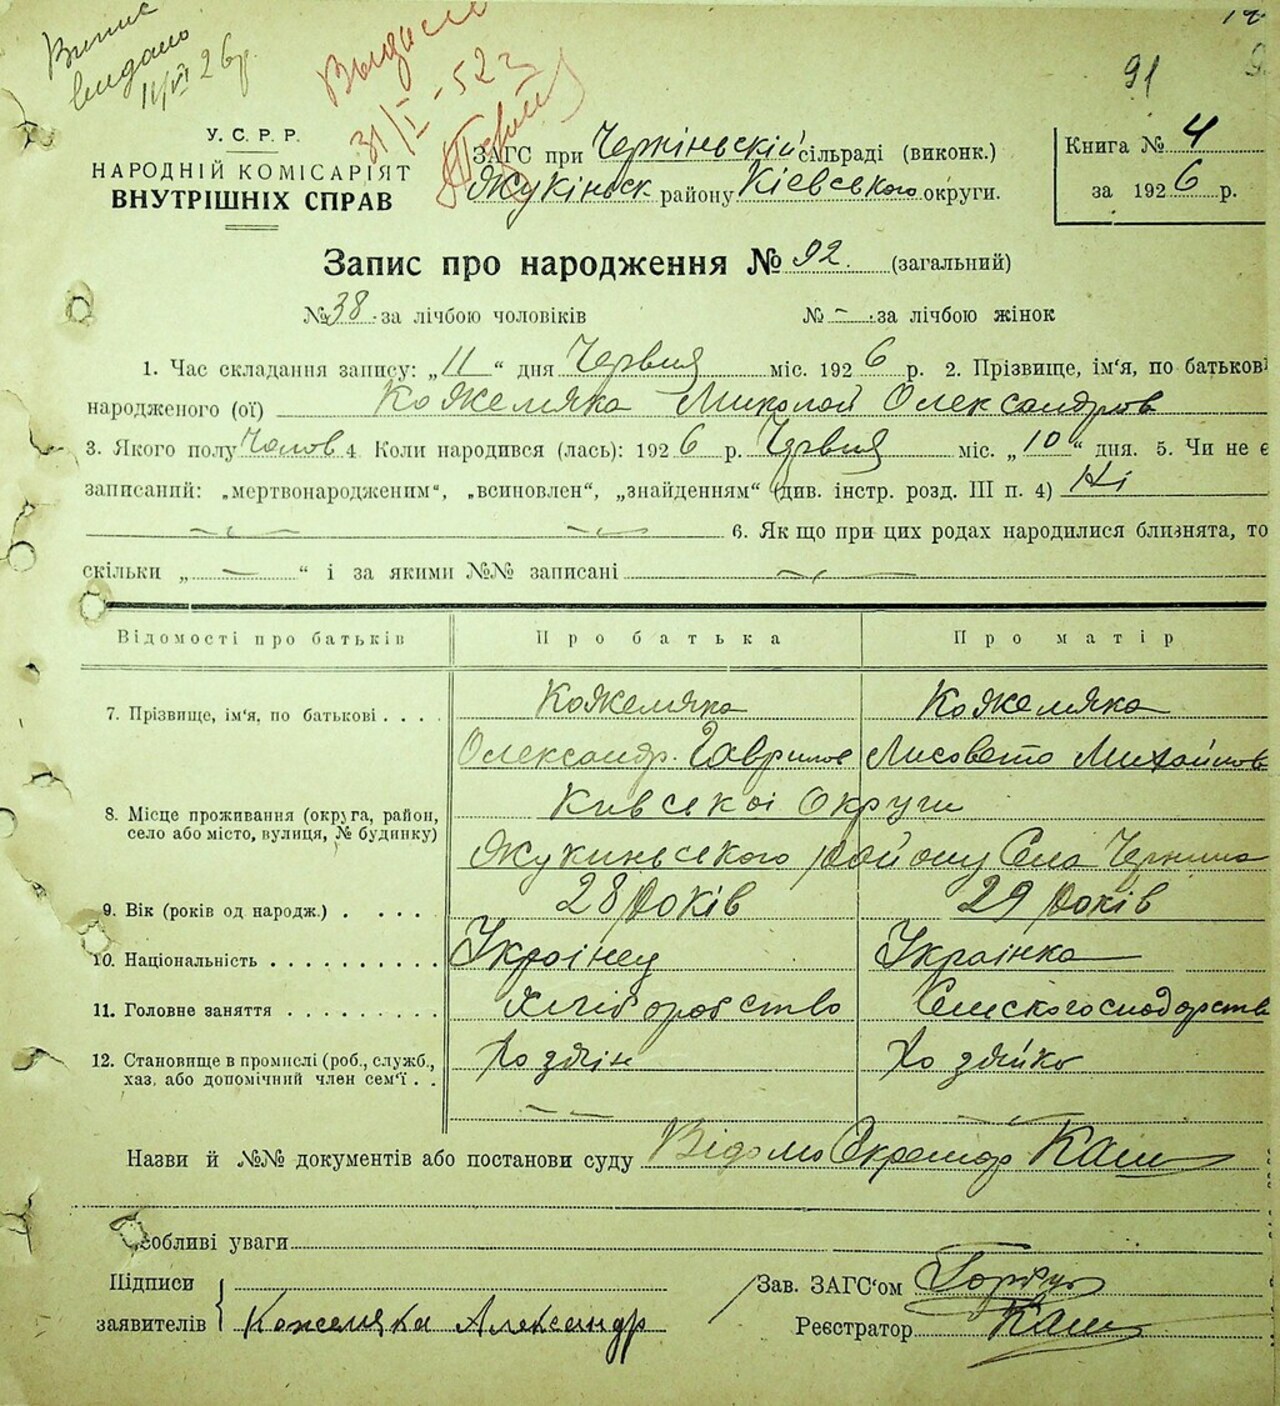 Випис
видано
11/VI 26р.
Выдано
31/I - 52 г
91
У. С. Р. Р.
НАРОДНІЙ КОМІСАРІЯТ
ВНУТРІШНІХ СПРАВ
ЗАГС при Черніньскій сільраді (виконк.)
Жукіньск району Кіевського округи.
Книга № 4
за 1926 р.
Запис про народження № 92. (загальний)
№ 38 за лічбою чоловіків № – за лічбою жінок
1. Час складання запису: „11“ дня Червня міс. 1926 р. 2. Прізвище, ім'я, по батькові
народженого (ої) Кожемяка Миколай Олександров
3. Якого полу Чолов 4. Коли народився (лась): 1926 р. Червня міс. „10“ дня. 5. Чи не є
записаний: „мертвонародженим“, „всиновлен“, „знайденням“ (див. інстр. розд. III п. 4) Ні
6. Як що при цих родах народилися близнята, то
скільки „ — “ і за якими №№ записані —
Відомості про батьків Про батька Про матір
7. Прізвище, ім'я, по батькові . . . . Кожемяка Кожемяка
Олександр. Гаврилов Лисовета Михайлов
8. Місце проживання (округа, район, село або місто, вулиця, № будинку) Кивськоі Округи
Жукиньського району Села Чернина
9. Вік (років од народж.) . . . . . 28 років 29 років
10. Національність . . . . . . . . . . Украінец Украінка
11. Головне заняття . . . . . . . . . Хліборобство Сельскогосподарств
12. Становище в промислі (роб., служб., хаз. або допомічний член сем'ї . . Хозяін Хозяйка
Назви й №№ документів або постанови суду Відомо Секретар Каш
Особливі уваги
Підписи
заявителів Кожемяка Александр
Зав. ЗАГС'ом
Реєстратор Каш